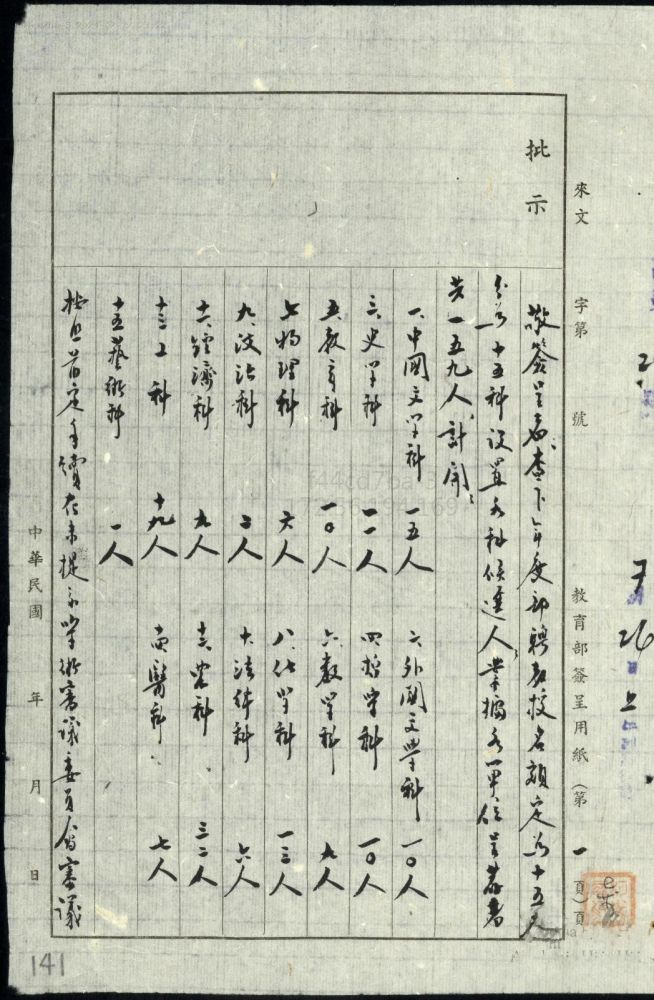 來文 字第 號 教育部簽呈用紙(第一頁)頁
批示
敬簽呈者查下年度部聘教授名額定為十五人
分為十五科設置各科候選人業據各單位呈薦者
共一五九人計開
一、中國文學科 一五人 二、外國文學科 一〇人
三、史學科 一一人 四、哲學科 一〇人
五、教育科 一〇人 六、數學科 九人
七、物理科 六人 八、化學科 一三人
九、政治科 二人 十、法律科 六人
十一、經濟科 九人 十二、農科 三二人
十三、工科 十九人 十四、醫科 七人
十五、藝術科 一人
按照前定手續在未提示學術審議委員會審議
中華民國 年 月 日
141